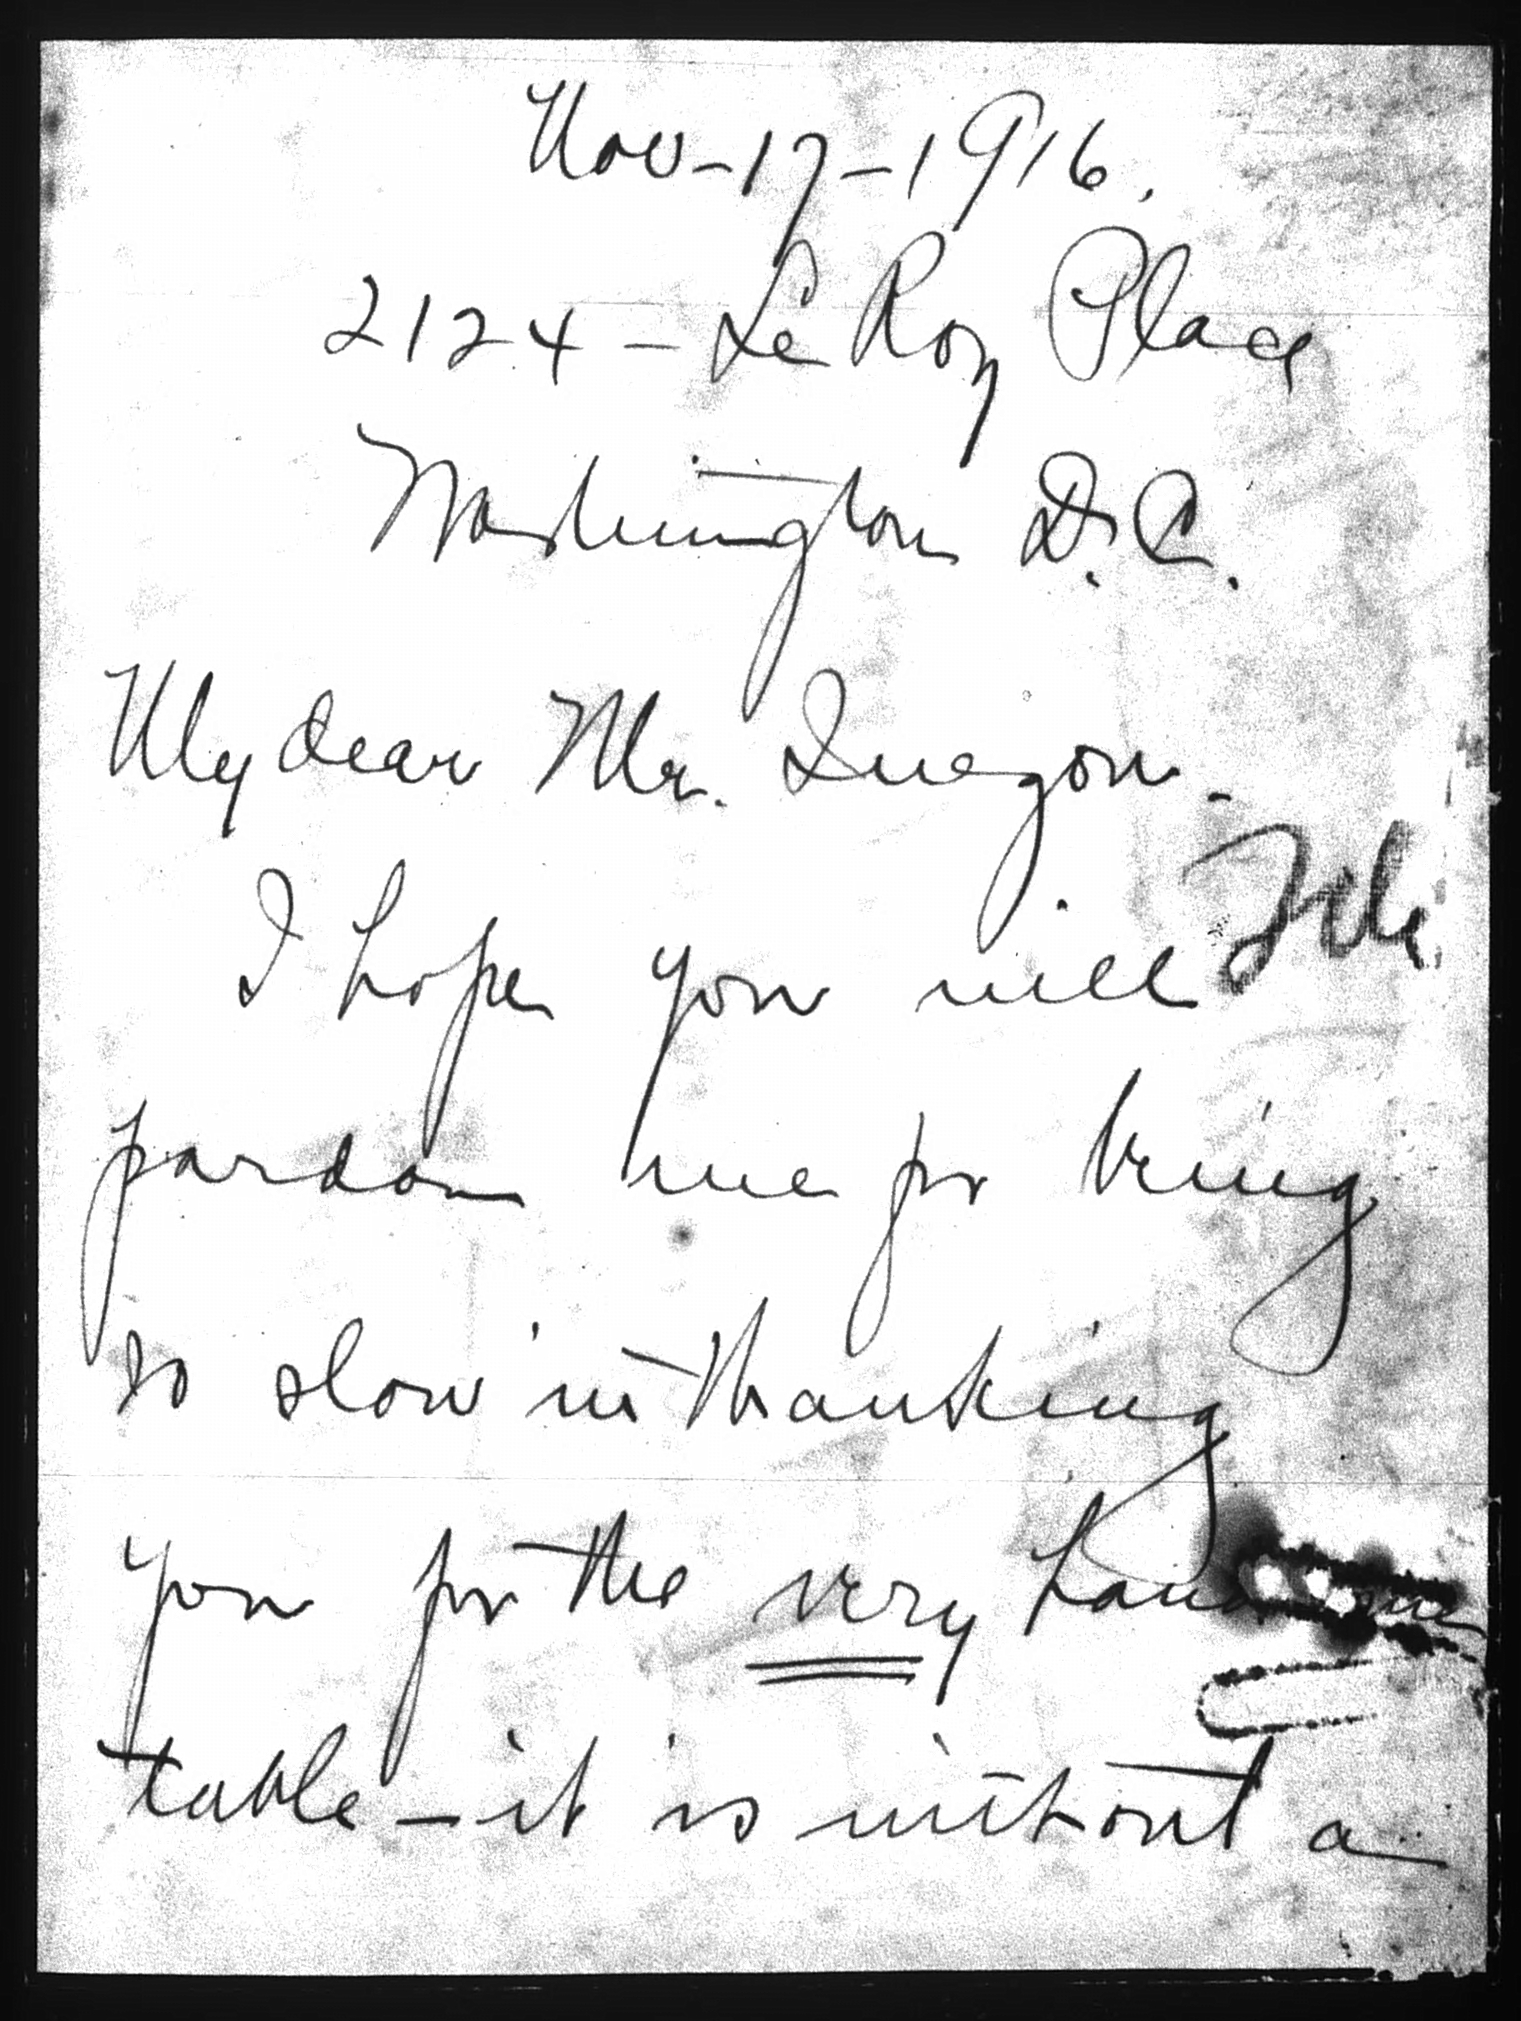 Nov-17-1916.
2124 - Le Roy Place
Washington D.C.
My dear Mr. Quezon.
File
I hope you will
pardon me for being
so slow in thanking
you for the very handsome
table - it is without a